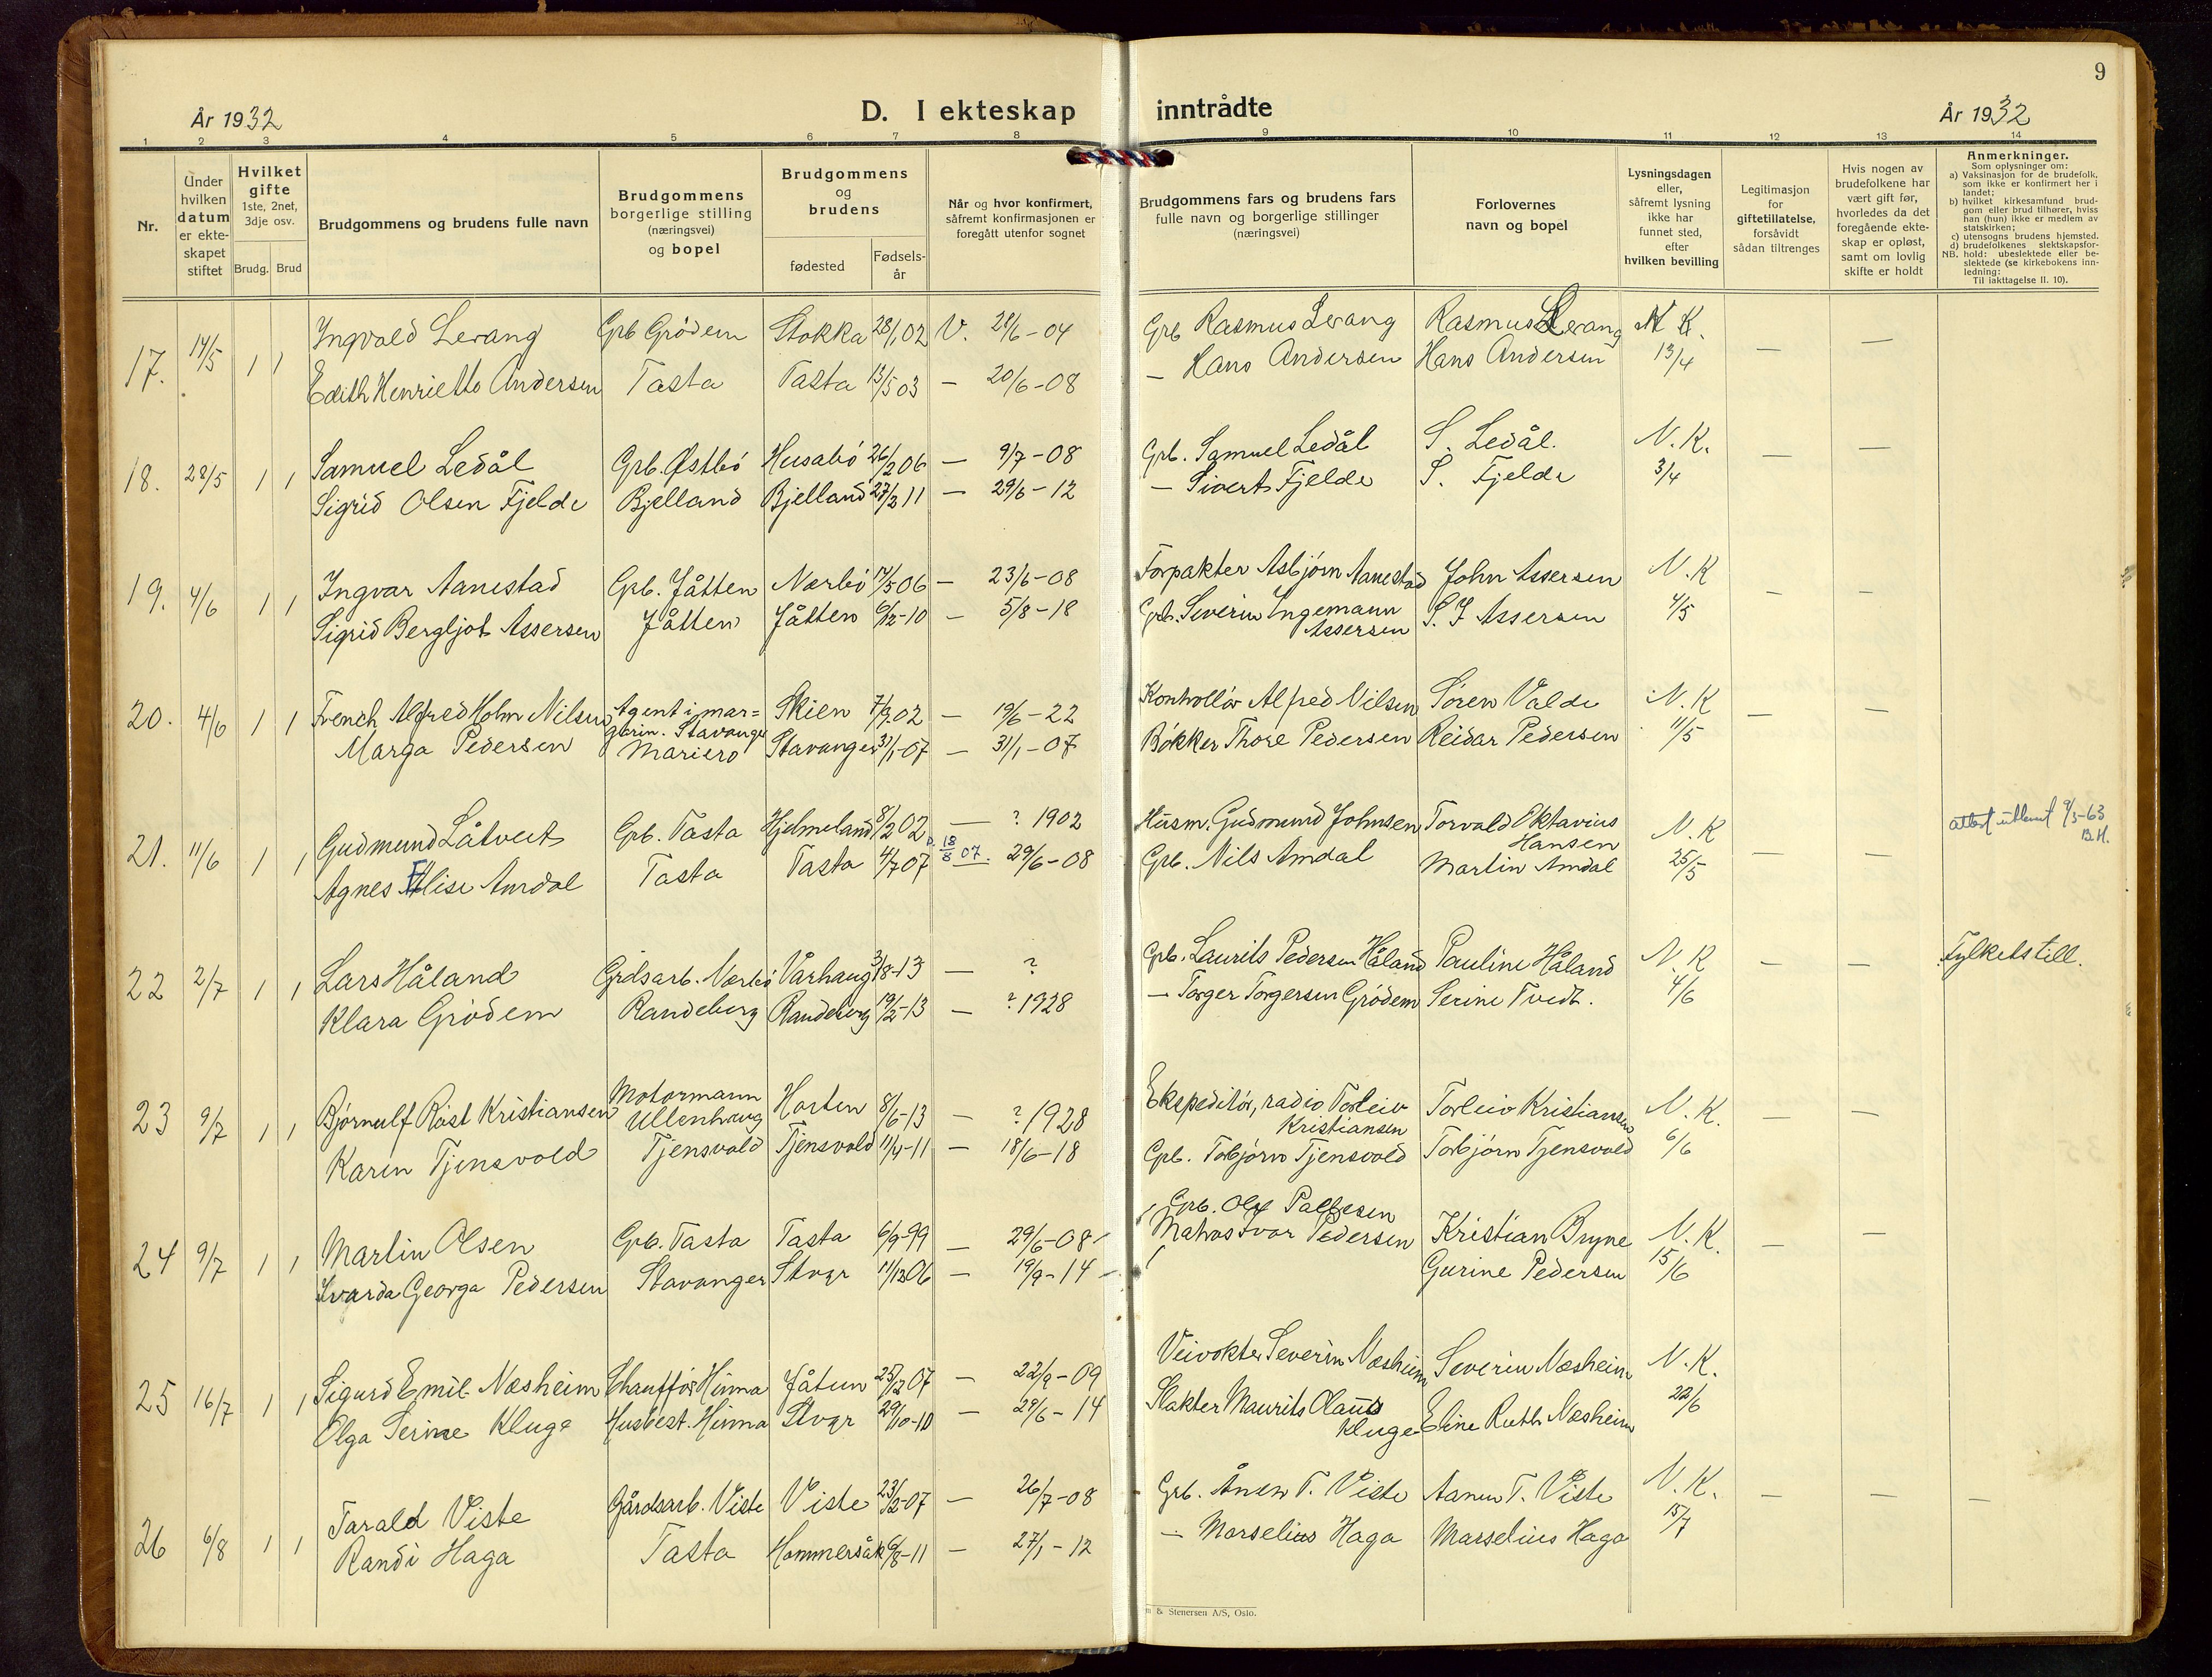 9
År 1932
D. I ekteskap inntrådte
År 1932
1 2 3 4 5 6 7 8 9 10 11 12 13 14
Nr.
Under hvilken datum er ekteskapet stiftet
Hvilket gifte 1ste, 2net, 3dje osv.
Brudg. Brud
Brudgommens og brudens fulle navn
Brudgommens borgerlige stilling (næringsvei) og bopel
Brudgommens og brudens
fødested
Fødsels-år
Når og hvor konfirmert, såfremt konfirmasjonen er foregått utenfor sognet
Brudgommens fars og brudens fars fulle navn og borgerlige stillinger (næringsvei)
Forlovernes navn og bopel
Lysningsdagen eller, såfremt lysning ikke har funnet sted, efter hvilken bevilling
Legitimasjon for giftetillatelse, forsåvidt sådan tiltrenges
Hvis nogen av brudefolkene har vært gift før, hvorledes da det foregående ekteskap er opløst, samt om lovlig skifte er holdt
Anmerkninger.
Som oplysninger om:
a) Vaksinasjon for de brudefolk, som ikke er konfirmert her i landet;
b) hvilket kirkesamfund brudgom eller brud tilhører, hviss han (hun) ikke er medlem av statskirken;
c) utensogns brudens hjemsted.
d) brudefolkenes slektskapsforhold: ubeslektede eller beslektede (se kirkebokens innledning:
NB. Til iakttagelse II. 10).
17. 14/5 1 1 Ingvald Lerang Grb Grödem Stokka 28/1 02 V. 28/6-04 Grb Rasmus Lerang Rasmus Lerang N K.
Edith Henriette Andersen Tasta Tasta 13/5 03 — 20/6-08 — Hans Andersen Hans Andersen 13/4 — —
18. 28/5 1 1 Samuel Ledål Grb. Østbö Husabö 26/2 06 — 9/7-08 Grb. Samuel Ledål S. Ledål. N. K.
Sigrid Olsen Fjelde Bjelland Bjelland 27/2 11 — 29/6-12 — Sivert Fjelde S. Fjelde 3/4 — —
19. 4/6 1 1 Ingvar Aanestad Gpb. Jåtten Nærbö 17/5 06 — 23/6-08 Forpakter Asbjörn Aanestad John Assersen N. K
Sigrid Bergljot Assersen Jåtten Jåtten 6/12-10 — 5/8-18 Grb. Severin Ingemann Assersen S. I Assersen 4/5 — —
20. 4/6 1 1 French Alfred Holm Nilsen Agent i mar= garin. Stavanger Skien 7/9 02 — 19/6-22 Kontrollör Alfred Nilsen Sören Valde N. K
Marga Pedersen Mariero Stavanger 31/1-07 — 31/1-07 Bökker Thore Pedersen Reidar Pedersen 11/5 — —
21. 11/6 1 1 Gudmund Låtveit Gpb. Tasta Hjelmeland 8/2 02 — ? 1902 Husm. Gudmund Johnsen Torvald Oktavius Hansen N. K
Agnes Elise Amdal Tasta Tasta 4/7 07 D. 18/8 07. 29/6-08 Grb. Nils Amdal Martin Amdal 25/5 — —
attest utlevert 9/3-63
B.H.
22 2/7 1 1 Lars Håland Grdsarb. Nærbö Varhaug 3/8-13 — ? Gpb. Laurits Pedersen Håland Pauline Håland N. K — — Fylkets till.
Klara Grödem Randeberg Randeberg 19/2-13 — ? 1928 — Torger Torgersen Grödem Serine Tvedt. 4/6
23 9/7 1 1 Björnulf Röst Kristiansen Motormann Ullenhaug Horten 8/6-13 — ? 1928 Ekspeditör, radio Torleiv Kristiansen Torleiv Kristiansen N. K. — —
Karen Tjensvold Tjensvold Tjensvold 11/4-11 — 18/6-18 Gpb. Torbjörn Tjensvold Torbjörn Tjensvold 6/6
24 9/7 1 1 Martin Olsen Grb. Tasta Tasta 6/9-99 — 29/6-08 Grb. Ole Pallesen Kristian Bryne N. K. — —
Ivarda Georga Pedersen Stavanger Stvgr 11/12 06 — 19/9-14 Matros Ivar Pedersen Gurine Pedersen 15/6
25 16/7 1 1 Sigurd Emil Næsheim Chaufför Hinna Jåtun 25/12 07 — 22/9-09 Veivokter Severin Næsheim Severin Næsheim N. K.
Olga Serine Kluge Husbest. Hinna Stvgr 29/10-10 — 28/6-14 Slakter Maurits Claus Kluge Eline Ruth Næsheim 22/6
26 6/8 1 1 Tarald Viste Gårdsarb. Viste Viste 23/2-07 — 26/7-08 Grb. Ånen T. Viste Aanen T. Viste N. K. — — —
Randi Haga Tasta Hommersåk 6/8-11 — 27/1-12 — Marselius Haga Marselius Haga 15/7
& Stenersen A/S, Oslo.